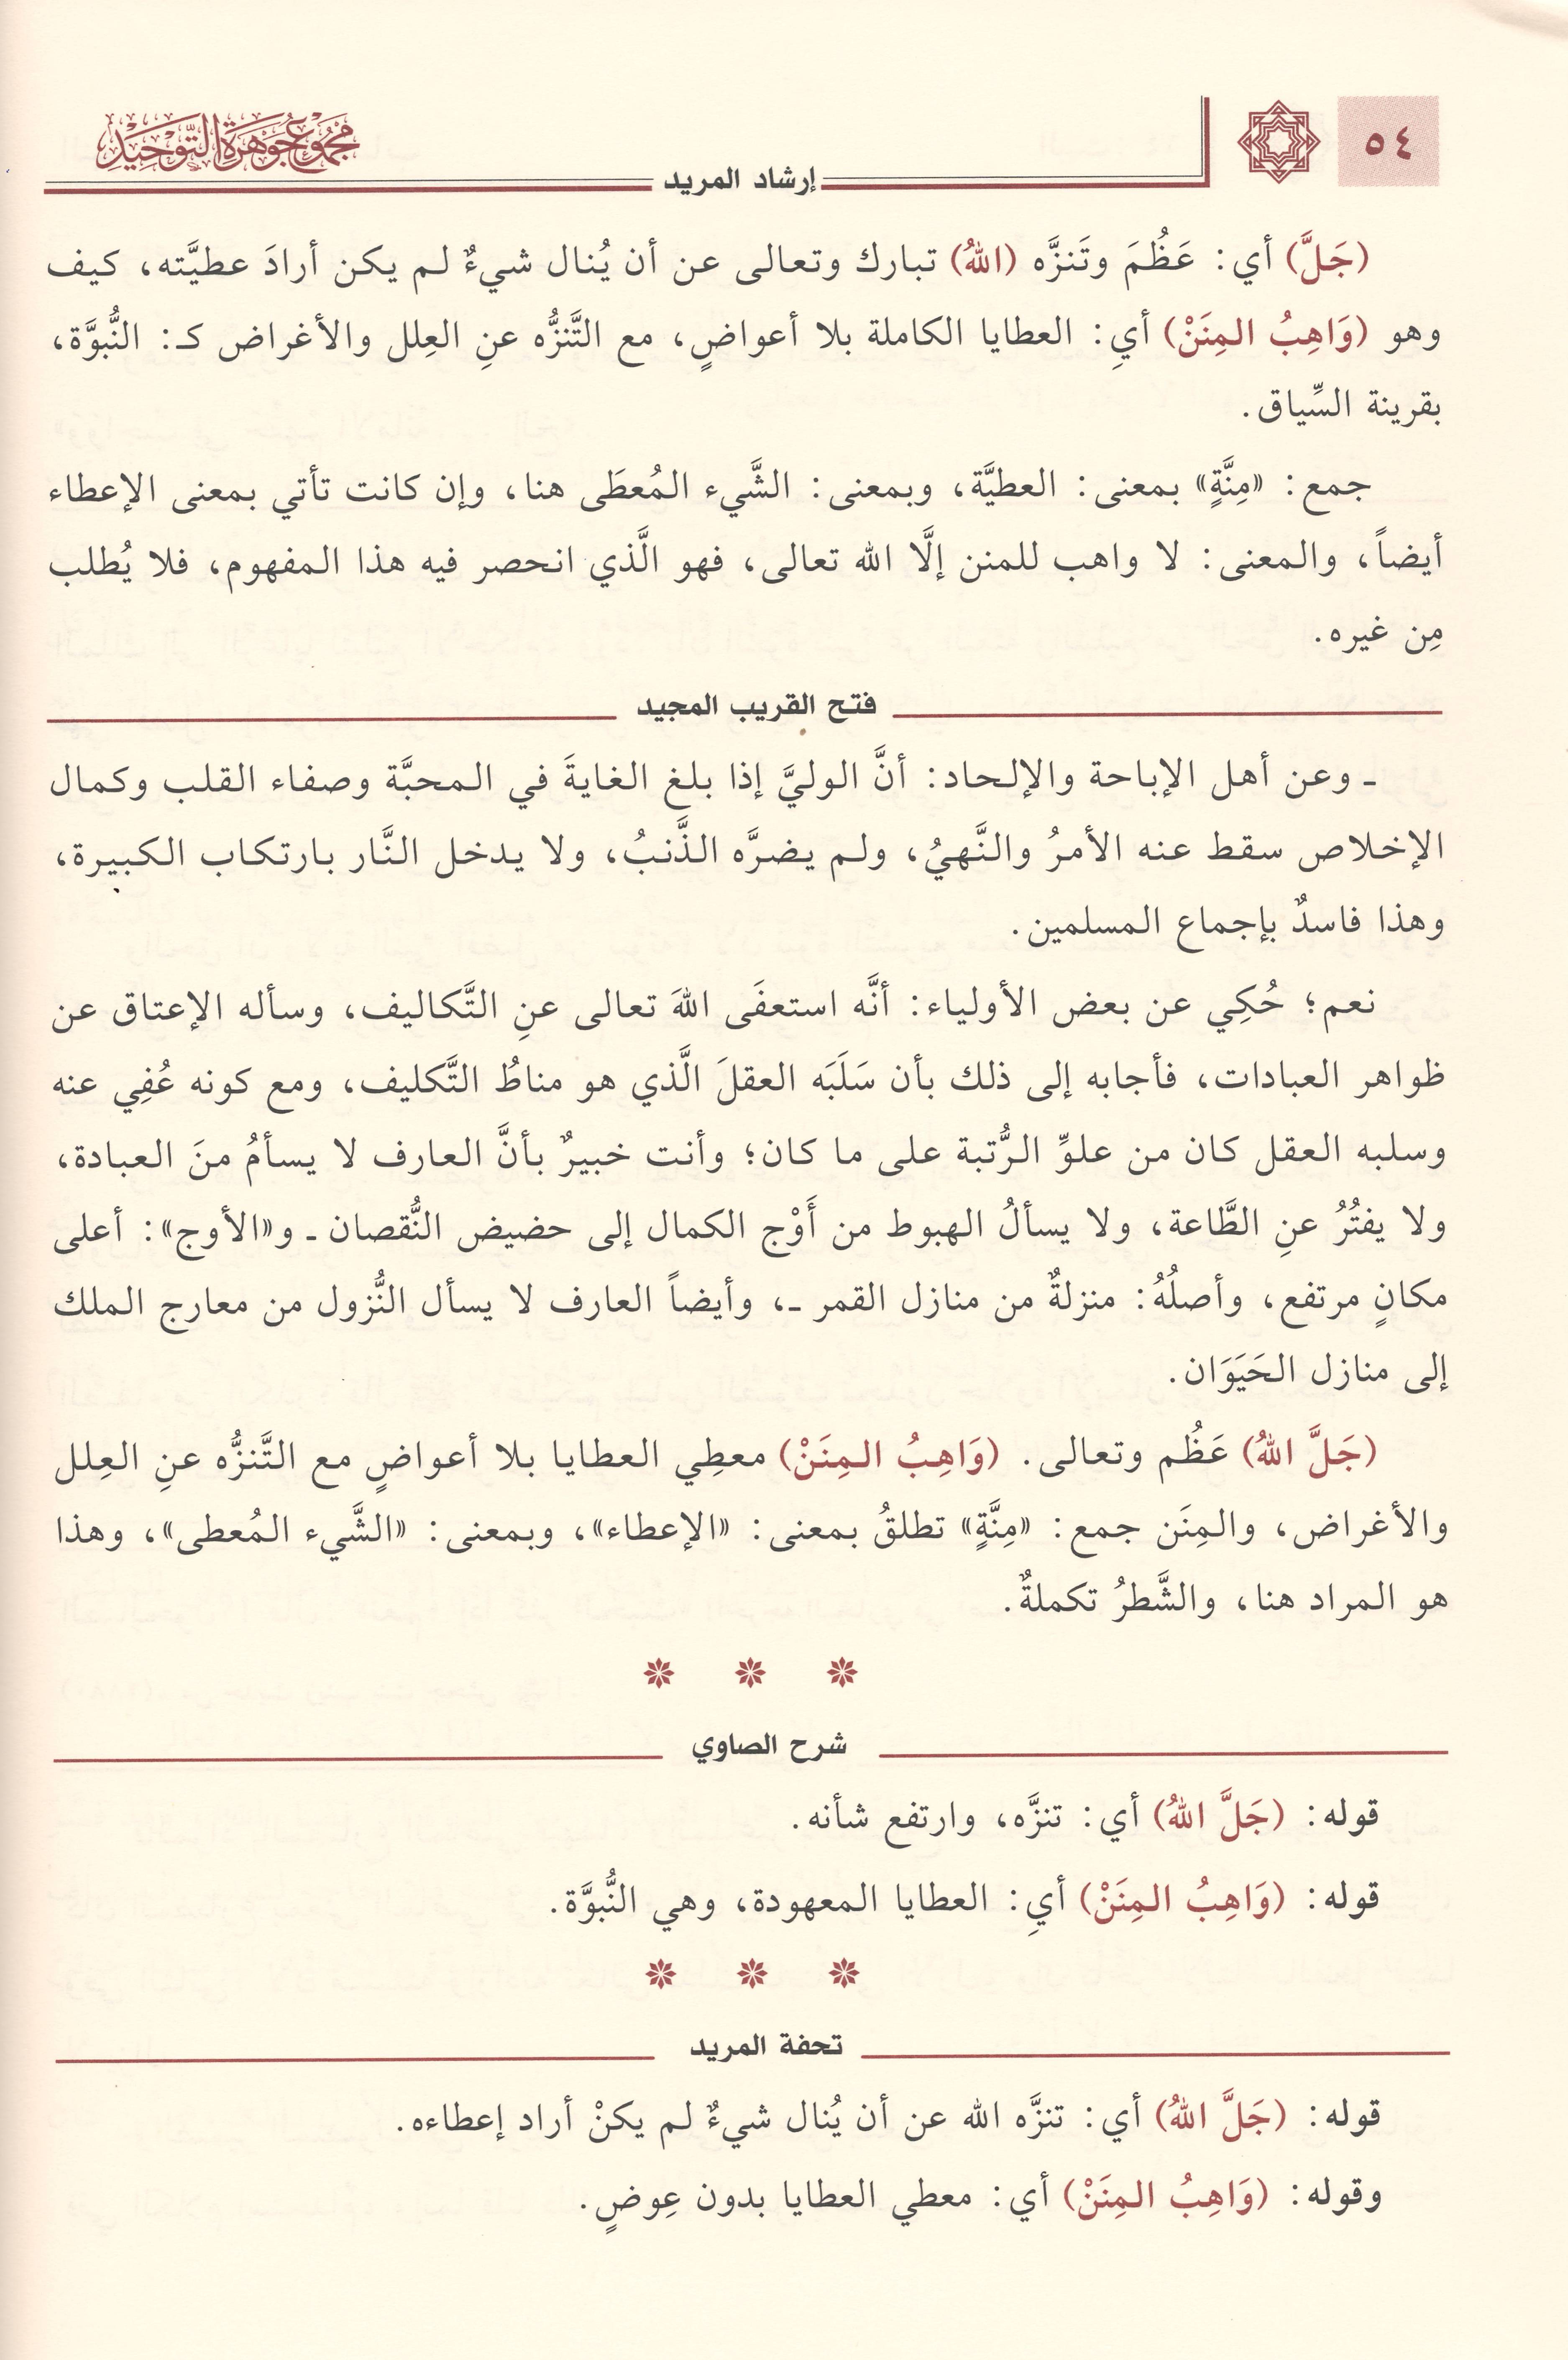 ٥٤
مجموع جوهرة التوحيد
إرشاد المريد
(جَلَّ) أي: عَظُمَ وتَنزَّه (اللهُ) تبارك وتعالى عن أن يُنال شيءٌ لم يكن أرادَ عطيَّته، كيف
وهو (وَاهِبُ المِنَنْ) أيِ: العطايا الكاملة بلا أعواضٍ، مع التَّنزُّه عنِ العِلل والأغراض كـ: النُّبوَّة،
بقرينة السِّياق.
جمع: «مِنَّةٍ» بمعنى: العطيَّة، وبمعنى: الشَّيء المُعطَى هنا، وإن كانت تأتي بمعنى الإعطاء
أيضاً، والمعنى: لا واهب للمنن إلَّا الله تعالى، فهو الَّذي انحصر فيه هذا المفهوم، فلا يُطلب
مِن غيره.
فتح القريب المجيد
ـ وعن أهل الإباحة والإلحاد: أنَّ الوليَّ إذا بلغ الغايةَ في المحبَّة وصفاء القلب وكمال
الإخلاص سقط عنه الأمرُ والنَّهيُ، ولم يضرَّه الذَّنبُ، ولا يدخل النَّار بارتكاب الكبيرة،
وهذا فاسدٌ بإجماع المسلمين.
نعم؛ حُكِي عن بعض الأولياء: أنَّه استعفَى اللهَ تعالى عنِ التَّكاليف، وسأله الإعتاق عن
ظواهر العبادات، فأجابه إلى ذلك بأن سَلَبَه العقلَ الَّذي هو مناطُ التَّكليف، ومع كونه عُفِي عنه
وسلبه العقل كان من علوِّ الرُّتبة على ما كان؛ وأنت خبيرٌ بأنَّ العارف لا يسأمُ منَ العبادة،
ولا يفتُرُ عنِ الطَّاعة، ولا يسألُ الهبوط من أَوْج الكمال إلى حضيض النُّقصان ـ و«الأوج»: أعلى
مكانٍ مرتفع، وأصلُهُ: منزلةٌ من منازل القمر ـ، وأيضاً العارف لا يسأل النُّزول من معارج الملك
إلى منازل الحَيَوَان.
(جَلَّ اللهُ) عَظُم وتعالى. (وَاهِبُ المِنَنْ) معطِي العطايا بلا أعواضٍ مع التَّنزُّه عنِ العِلل
والأغراض، والمِنَن جمع: «مِنَّةٍ» تطلقُ بمعنى: «الإعطاء»، وبمعنى: «الشَّيء المُعطى»، وهذا
هو المراد هنا، والشَّطرُ تكملةٌ.
شرح الصاوي
قوله: (جَلَّ اللهُ) أي: تنزَّه، وارتفع شأنه.
قوله: (وَاهِبُ المِنَنْ) أيِ: العطايا المعهودة، وهي النُّبوَّة.
تحفة المريد
قوله: (جَلَّ اللهُ) أي: تنزَّه الله عن أن يُنال شيءٌ لم يكنْ أراد إعطاءه.
وقوله: (وَاهِبُ المِنَنْ) أي: معطي العطايا بدون عِوضٍ.